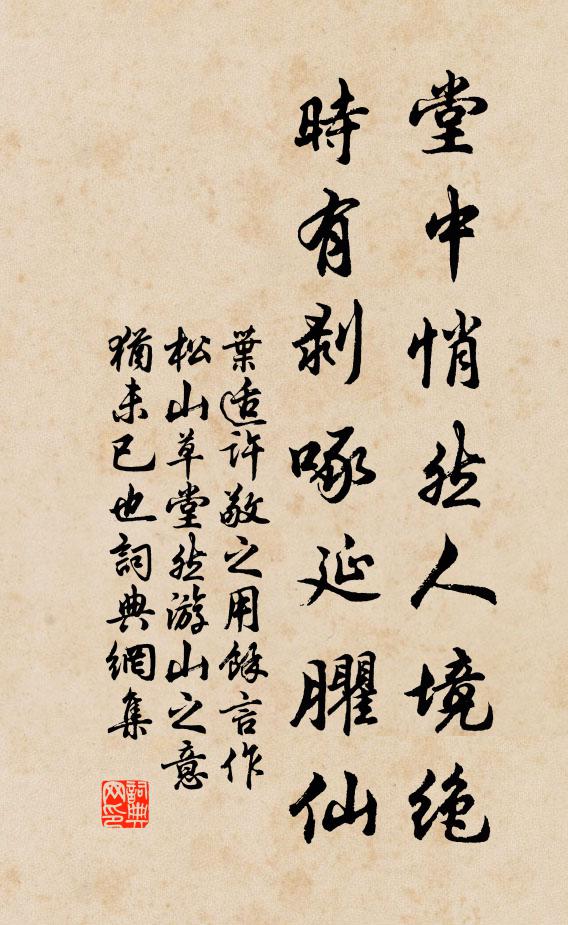 堂中悄然人境绝
時有剥啄延臞仙
葉适許敬之用餘言作
松山草堂然游山之意
猶未已也詞典網集
詞典
网印